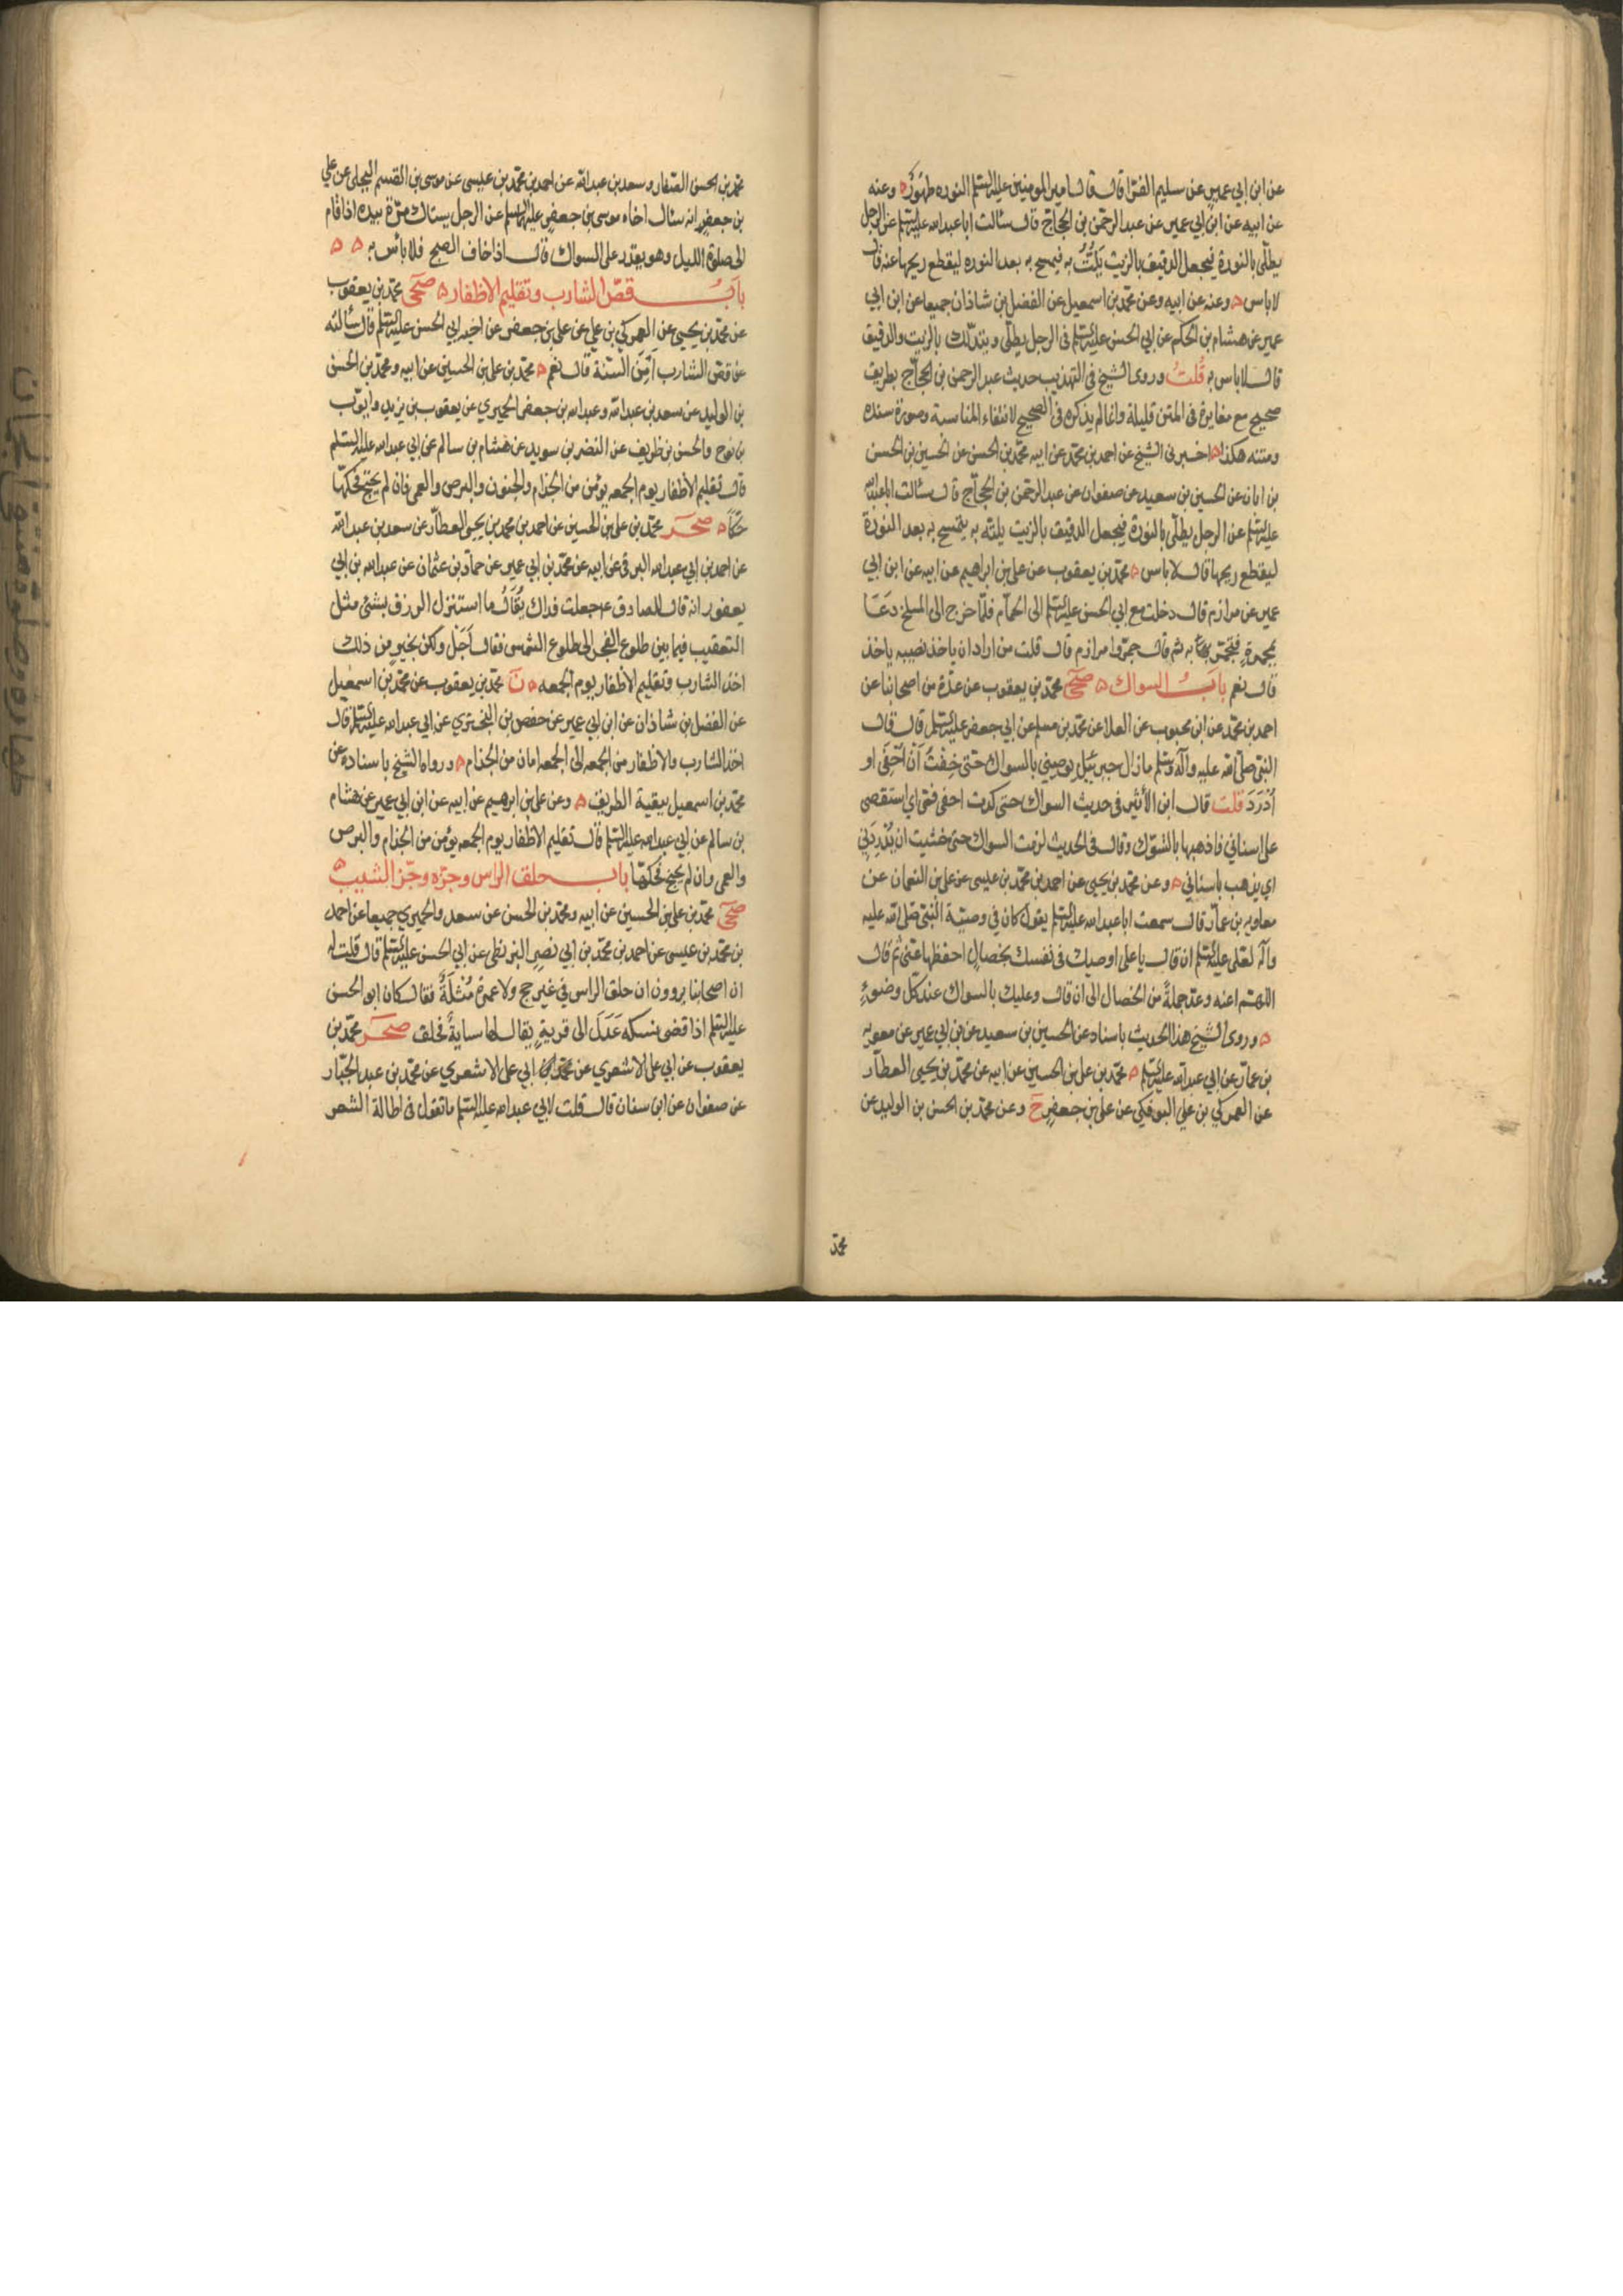 عن ابن ابي عمير عن سليم الفرّا قال قال امير المومنين عليه السلم النوره طهور ه وعنه
عن ابيه عن ابن ابي عمير عن عبد الرحمن بن الحجاج قال سألت ابا عبد الله عليه السلم عن الرجل
يطلّى بالنورة فيجعل الدقيق بالزيت يَلُتُّ به فيمسح به بعد النوره ليقطع ريحها عنه قال
لا باس ه وعنه عن ابيه وعن محمد بن اسمعيل عن الفضل بن شاذان جميعا عن ابن ابي
عمير عن هشام بن الحكم عن ابي الحسن عليه السلم في الرجل يطلّى ويتدلّك بالزيت والدقيق
قال لا باس به قُلتُ وروى الشيخ في التهذيب حديث عبد الرحمن بن الحجّاج بطريق
صحيح مع مغايرة في المتن قليلة وانما لم يذكره في الصحيح لانتفاء المناسبة وصورة سنده
ومتنه هكذا ه اخبرنى الشيخ عن احمد بن محمد عن ابيه محمد بن الحسن عن الحسين بن الحسن
بن ابان عن الحسين بن سعيد عن صفوان عن عبد الرحمن بن الحجاج قال سألت ابا عبد الله
عليه السلم عن الرجل يطلّى بالنورة فيجعل الدقيق بالزيت يلتّه به يتمسح به بعد النورة
ليقطع ريحها قال لا باس ه محمد بن يعقوب عن علي بن ابراهيم عن ابيه عن ابن ابي
عمير عن مرازم قال دخلت مع ابي الحسن عليه السلم الى الحمّام فلمّا خرج الى المسلخ دَعَا
بمجمرةٍ فتجمّر به ثم قال جمّروا مرازم قال قلت من اراد ان ياخذ نصيبه ياخذ
قال نعم بابُ السواك ه صحي محمد بن يعقوب عن عدّة من اصحابنا عن
احمد بن محمد عن ابن محبوب عن العلا عن محمد بن مسلم عن ابي جعفر عليه السلم قال قال
النبي صلّى الله عليه وآله وسلم ما زال جبرئيل يوصيني بالسواك حتى خِفْتُ اَنْ اُحْفَى او
اَدْرَدَ قلت قال ابن الأثير في حديث السواك حتى كدت احفى فمى اي استقصى
على اسناني فاذهبها بالتسوّك وقال في الحديث لزمت السواك حتى خشيت ان يُدْرِدَنِي
اي يذهب باسناني ه وعن محمد بن يحيى عن احمد بن محمد بن عيسى عن علي بن النعمان عن
معاويه بن عمّار قال سمعت ابا عبد الله عليه السلم يقول كان في وصيّة النبي صلى الله عليه
وآله لعلى عليه السلم ان قال يا على اوصيك في نفسك بخصالٍ احفظها عنّى ثم قال
اللهم اعنه وعدّ جملةً من الخصال الى ان قال وعليك بالسواك عند كل وضوءٍ
ه وروى الشيخ هذا الحديث باسناده عن الحسين بن سعيد عن ابن ابي عمير عن معويه
بن عمّار عن ابي عبد الله عليه السلم ه محمد بن علي بن الحسين عن ابيه عن محمد بن يحيى العطّار
عن العمركي بن علي البوفكي عن علي بن جعفرٍ ح وعن محمد بن الحسن بن الوليد عن
محمد
محمد بن الحسن الصفار وسعد بن عبد الله عن احمد بن محمد بن عيسى عن موسى بن القسم البجلي عن علي
بن جعفر انه سئال اخاه موسى بن جعفر عليه السلم عن الرجل يستاك مرّة بيده اذا قام
الى صلوة الليل وهو يقدر على السواك قال اذا خاف الصبح فلا بأس به ه ه
بابُ قصّ الشارب وتقليم الاظفار ه صحي محمد بن يعقوب
عن محمد بن يحيى عن العمركي بن علي عن علي بن جعفر عن اخيه ابي الحسن عليه السلم قال سألته
عن قصّ الشارب اَمِنَ السّنة قال نعم ه محمد بن علي بن الحسين عن ابيه ومحمد بن الحسن
بن الوليد عن سعد بن عبد الله وعبد الله بن جعفر الحميري عن يعقوب بن يزيد وايوّب
بن نوح والحسن بن ظريف عن النضر بن سويد عن هشام بن سالم عن ابي عبد الله عليه السلم
قال تقليم الأظفار يوم الجمعه يؤمن من الجذام والجنون والبرص والعمى فان لم يحتج فحكّها
حكّاً ه صحر محمّد بن علي بن الحسين عن احمد بن محمد بن يحيى العطّار عن سعد بن عبد الله
عن احمد بن ابي عبد الله البرقى عن ابيه عن محمد بن ابي عمير عن حمّاد بن عثمان عن عبد الله بن ابي
يعفور انه قال للصادق ع جعلت فداك يُقَالُ ما استنزل الرزق بشئ مثل
التعقيب فيما بين طلوع الفجر الى طلوع الشمس فقال اَجَل ولكن بخيرٍ من ذلك
اخذ الشارب وتقليم الاظفار يوم الجمعه ه نَ محمد بن يعقوب عن محمد بن اسمعيل
عن الفضل بن شاذان عن ابن ابي عمير عن حفص بن البخترى عن ابي عبد الله عليه السلم قال
اخذ الشارب والاظفار من الجمعه الى الجمعه امان من الجذام ه ورواه الشيخ باسناده عن
محمد بن اسمعيل ببقية الطريق ه وعن علي بن ابرهيم عن ابيه عن ابن ابي عمير عن هشام
بن سالم عن ابي عبد الله عليه السلم قال تقليم الاظفار يوم الجمعه يؤمن من الجذام والبرص
والعمى وان لم يحتج فحكّها باب حلق الراس وجزّه وجزّ الشيب ه
صحي محمد بن علي بن الحسين عن ابيه ومحمد بن الحسن عن سعد والحميري جميعا عن احمد
بن محمد بن عيسى عن احمد بن محمد بن ابي نصرٍ البزنطي عن ابي الحسن عليه السلم قال قلت له
ان اصحابنا يروون ان حلق الراس في غير حج ولا عمرة مُثلَةٌ فقال كان ابو الحسن
عليه السلم اذا قضى نسكه عَدَلَ الى قريةٍ يقال لها سايةُ فحلق صحر محمّد بن
يعقوب عن ابي علي الاشعري عن محمد ابي علي الاشعري عن محمد بن عبد الجبّار
عن صفوان عن ابن سنان قال قلت لابي عبد الله عليه السلم ما تقول في اطالة الشعر